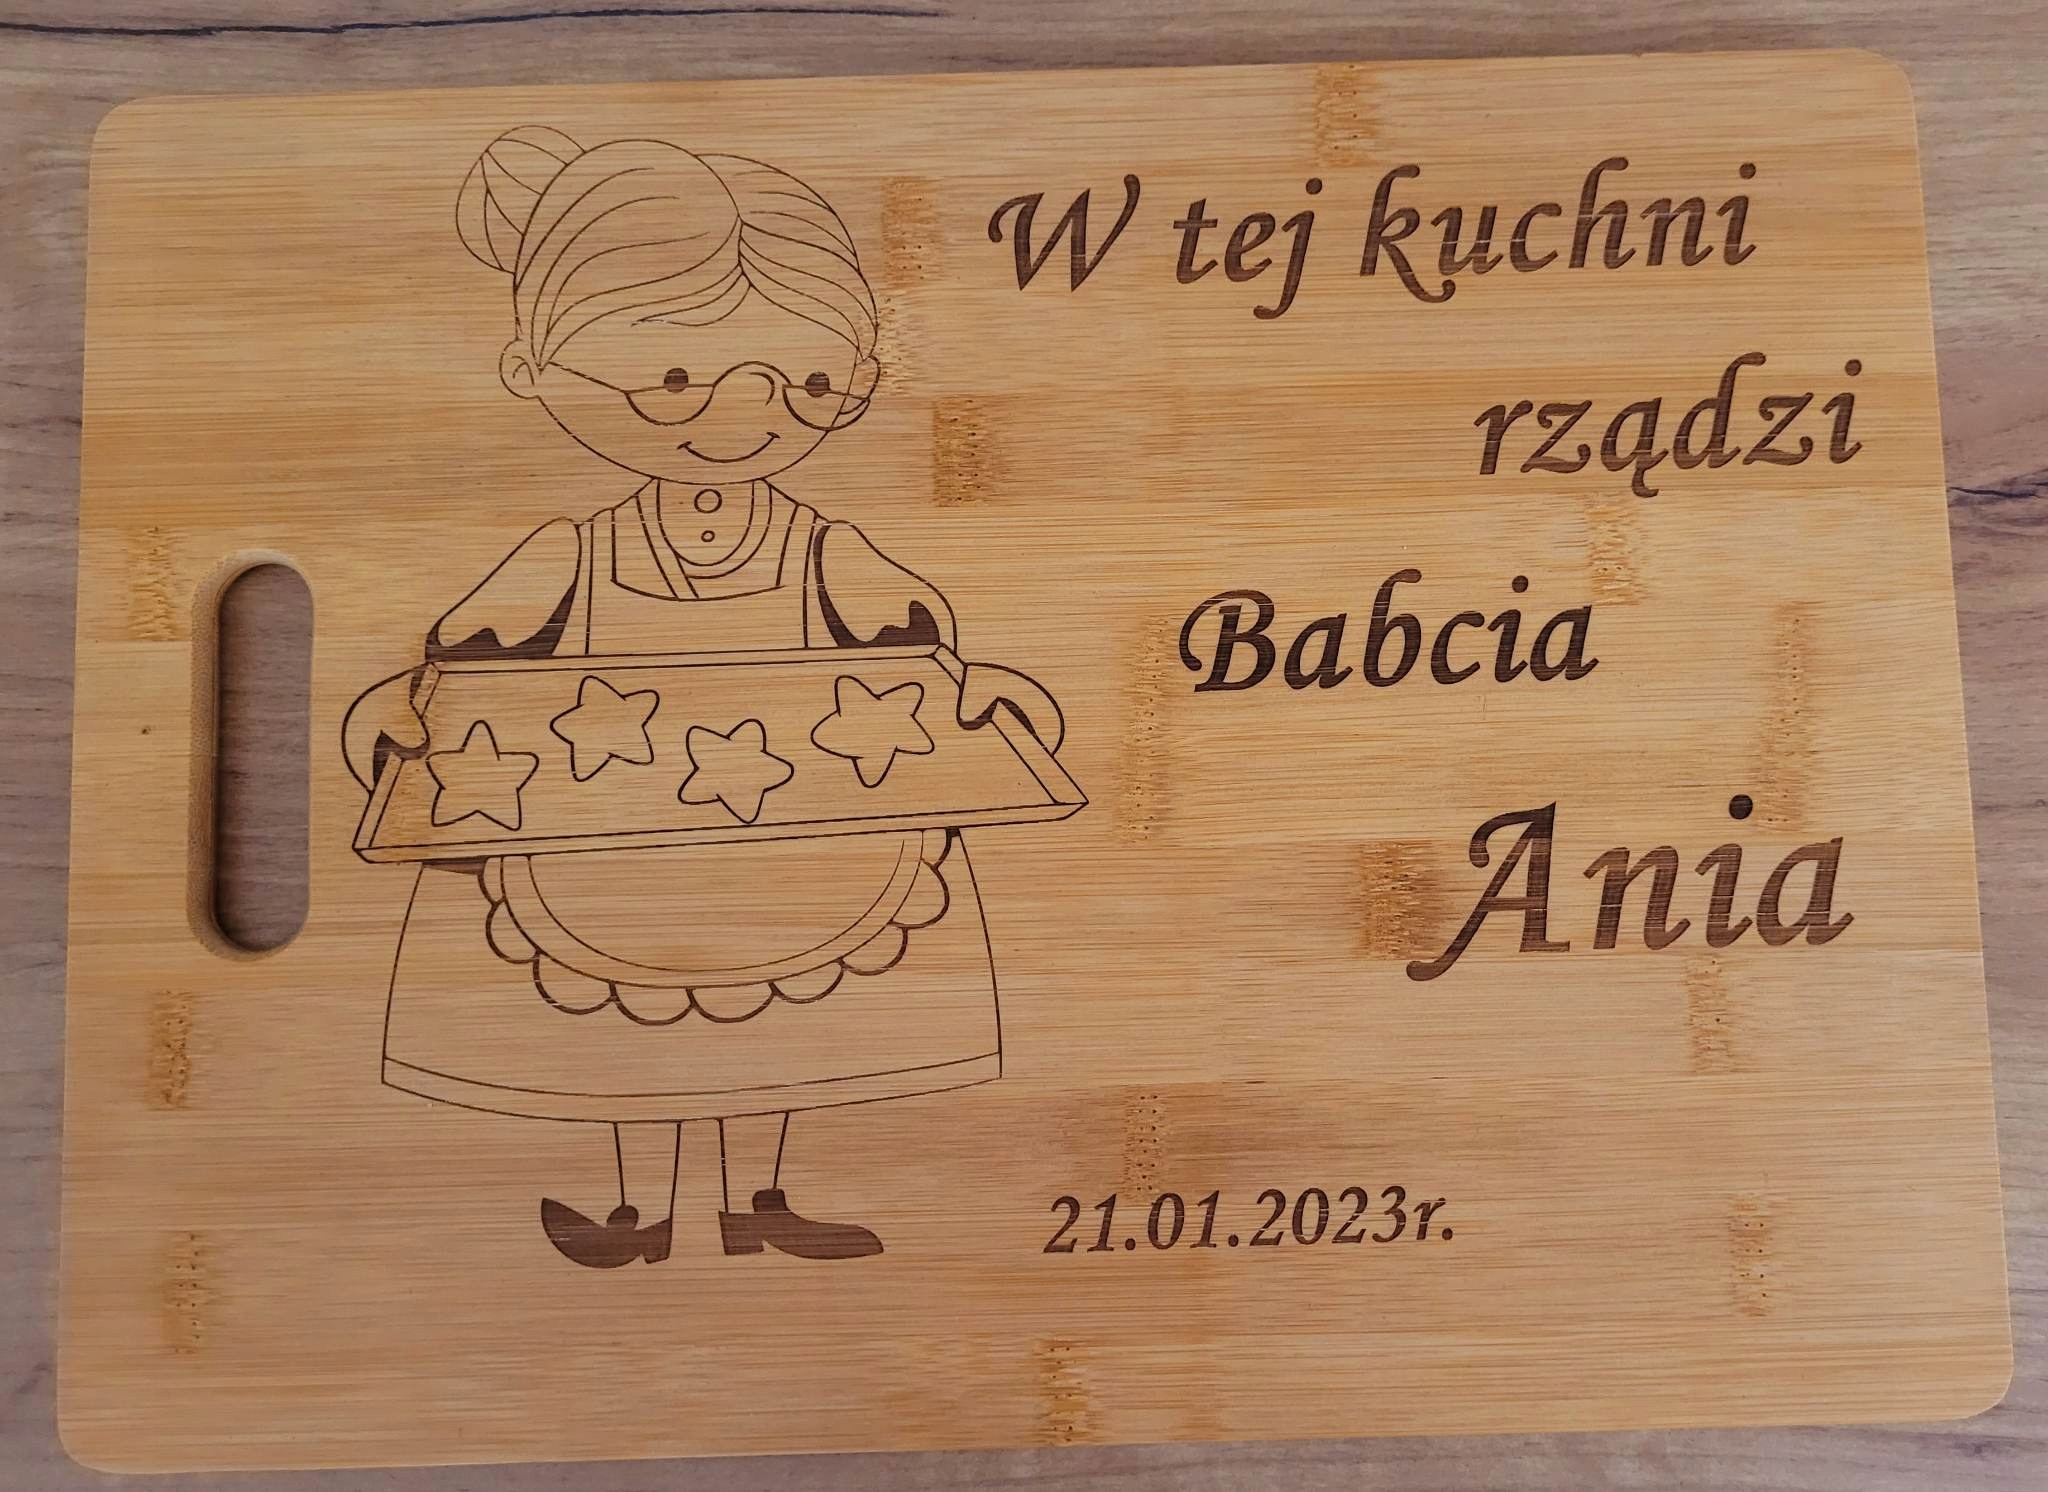 W tej kuchni
rządzi
Babcia
Ania
21.01.2023r.